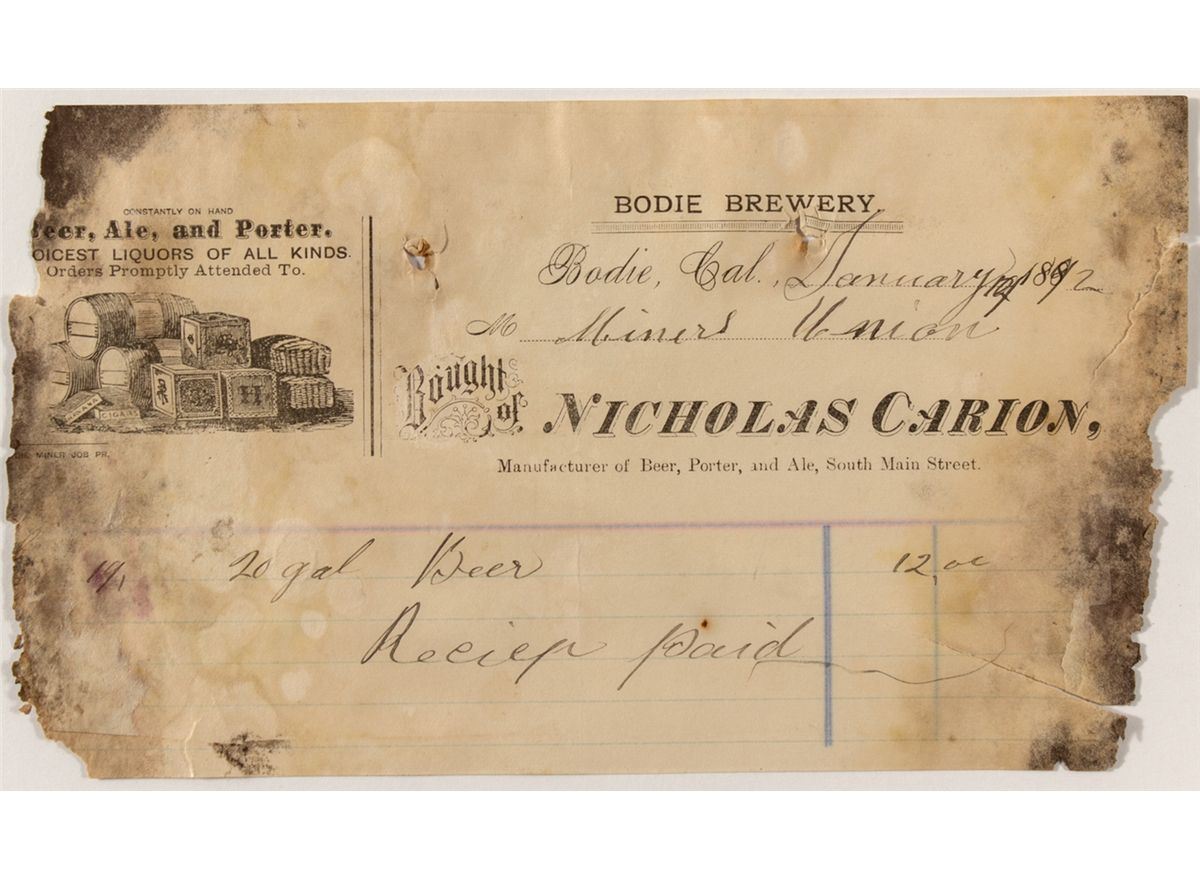 CONSTANTLY ON HAND
Beer, Ale, and Porter.
OICEST LIQUORS OF ALL KINDS.
Orders Promptly Attended To.
CIGARS
H
MINER JOB PR.
BODIE BREWERY.
Bodie, Cal., January 1892
M Miners Union
Bought of NICHOLAS CARION,
Manufacturer of Beer, Porter, and Ale, South Main Street.
20 gal Beer 12,00
Reciep paid